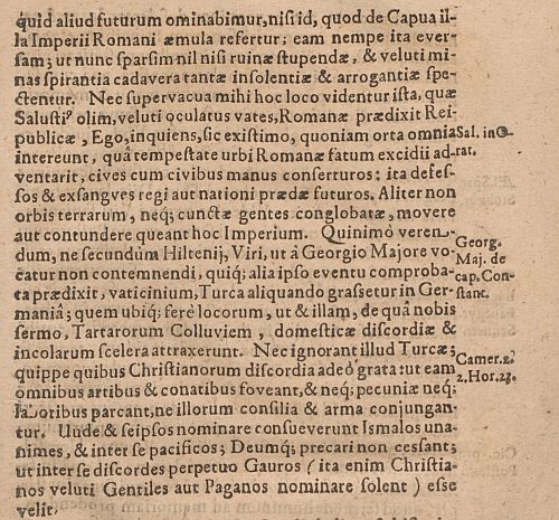 quid aliud futurum ominabimur, nisi id, quod de Capua il-
la Imperii Romani æmula refertur; eam nempe ita ever-
sam; ut nunc sparsim nil nisi ruinæ stupendæ, & veluti mi-
nas spirantia cadavera tantæ insolentiæ & arrogantiæ spe-
ctentur. Nec supervacua mihi hoc loco videntur ista, quæ
Salustiꝰ olim, veluti oculatus vates, Romanæ prædixit Rei-
publicæ, Ego, inquiens, sic existimo, quoniam orta omnia
Sal. in O-
intereunt, quâ tempestate urbi Romanæ fatum excidii ad-
rat.
ventarit, cives cum civibus manus conserturos: ita defes-
sos & exsangves regi aut nationi prædæ futuros. Aliter non
orbis terrarum, neq; cunctæ gentes conglobatæ, movere
aut contundere queant hoc Imperium. Quinimò veren-
dum, ne secundùm Hiltenij, Viri, ut à Georgio Majore vo-
Georg.
catur non contemnendi, quiq; alia ipso eventu comproba-
Maj. de
cap. Con-
ta prædixit, vaticinium, Turca aliquando grassetur in Ger-
stant.
maniâ; quem ubiq; ferè locorum, ut & illam, de quâ nobis
sermo, Tartarorum Colluviem, domesticæ discordiæ &
incolarum scelera attraxerunt. Nec ignorant illud Turcæ;
quippe quibus Christianorum discordia adeò grata: ut eam
Camer. 2.
omnibus artibus & conatibus foveant, & neq; pecuniæ neq;
2. Hor. 23.
laboribus parcant, ne illorum consilia & arma conjungan-
tur. Unde & seipsos nominare consueverunt Ismalos una-
nimes, & inter se pacificos; Deumq; precari non cessant;
ut inter se discordes perpetuo Gauros (ita enim Christia-
nos veluti Gentiles aut Paganos nominare solent) esse
velit.